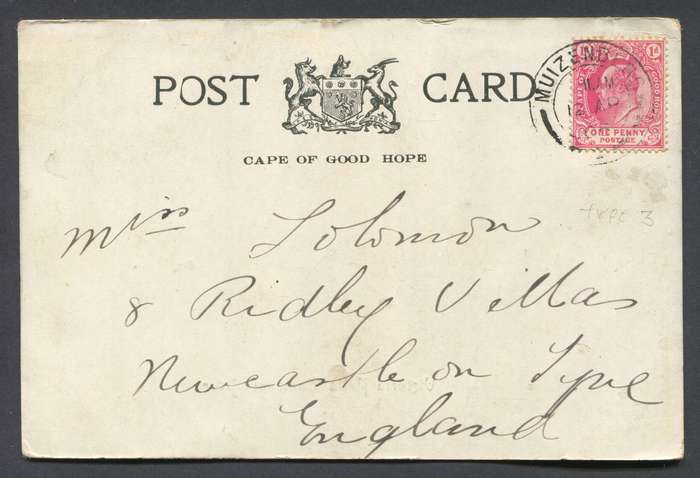 POST CARD
CAPE OF GOOD HOPE
MUIZENB
1d
ONE PENNY
POSTAGE
type 3
Miss Solomon
8 Ridley Villas
Newcastle on Tyne
England